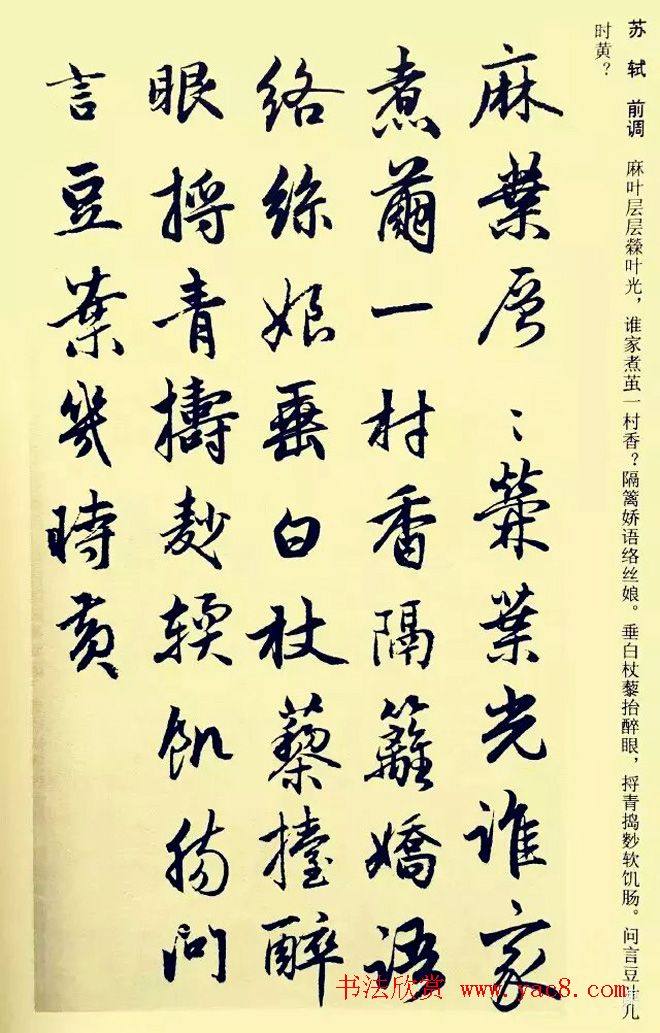 苏 轼 前调 麻叶层层檾叶光，谁家煮茧一村香？隔篱娇语络丝娘。垂白杖藜抬醉眼，捋青捣麨软饥肠。问言豆叶几
时黄？
麻葉層〻檾葉光誰家
煮繭一村香隔籬嬌語
絡絲娘垂白杖藜擡醉
眼捋青擣麨輭飢腸問
言豆葉幾時黄
书法欣赏 www.yac8.com